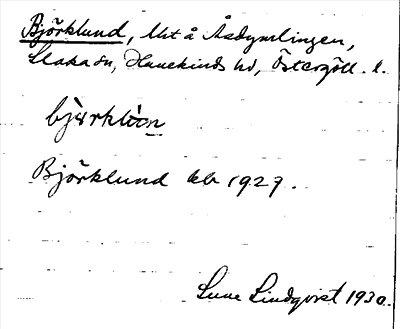 Björklund, Ut å Åsdymlingen,
Slaka sn, Hanekinds hd, Östergötl. l.
Björklund kb 1927.
Sune Lindqvist 1930.